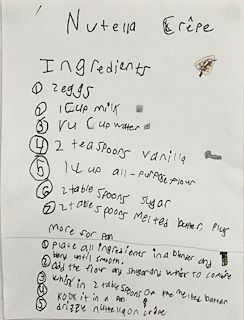 Nutella Crêpe
Ingredients
1 2 eggs
2 1 Cup milk
3 Cup water
4 2 teaspoons vanilla
5 Cup all-purpose flour
6 2 table spoons sugar
7 2 table spoons melted butter, plus
more for pan
1 place all ingredients in a blender and
blend until smooth.
2 add the flour and sugar and whisk to combine
3 whisk in 2 tablespoons of the melted butter
4 kook it in a pan
5 drizzle nutella on crepe